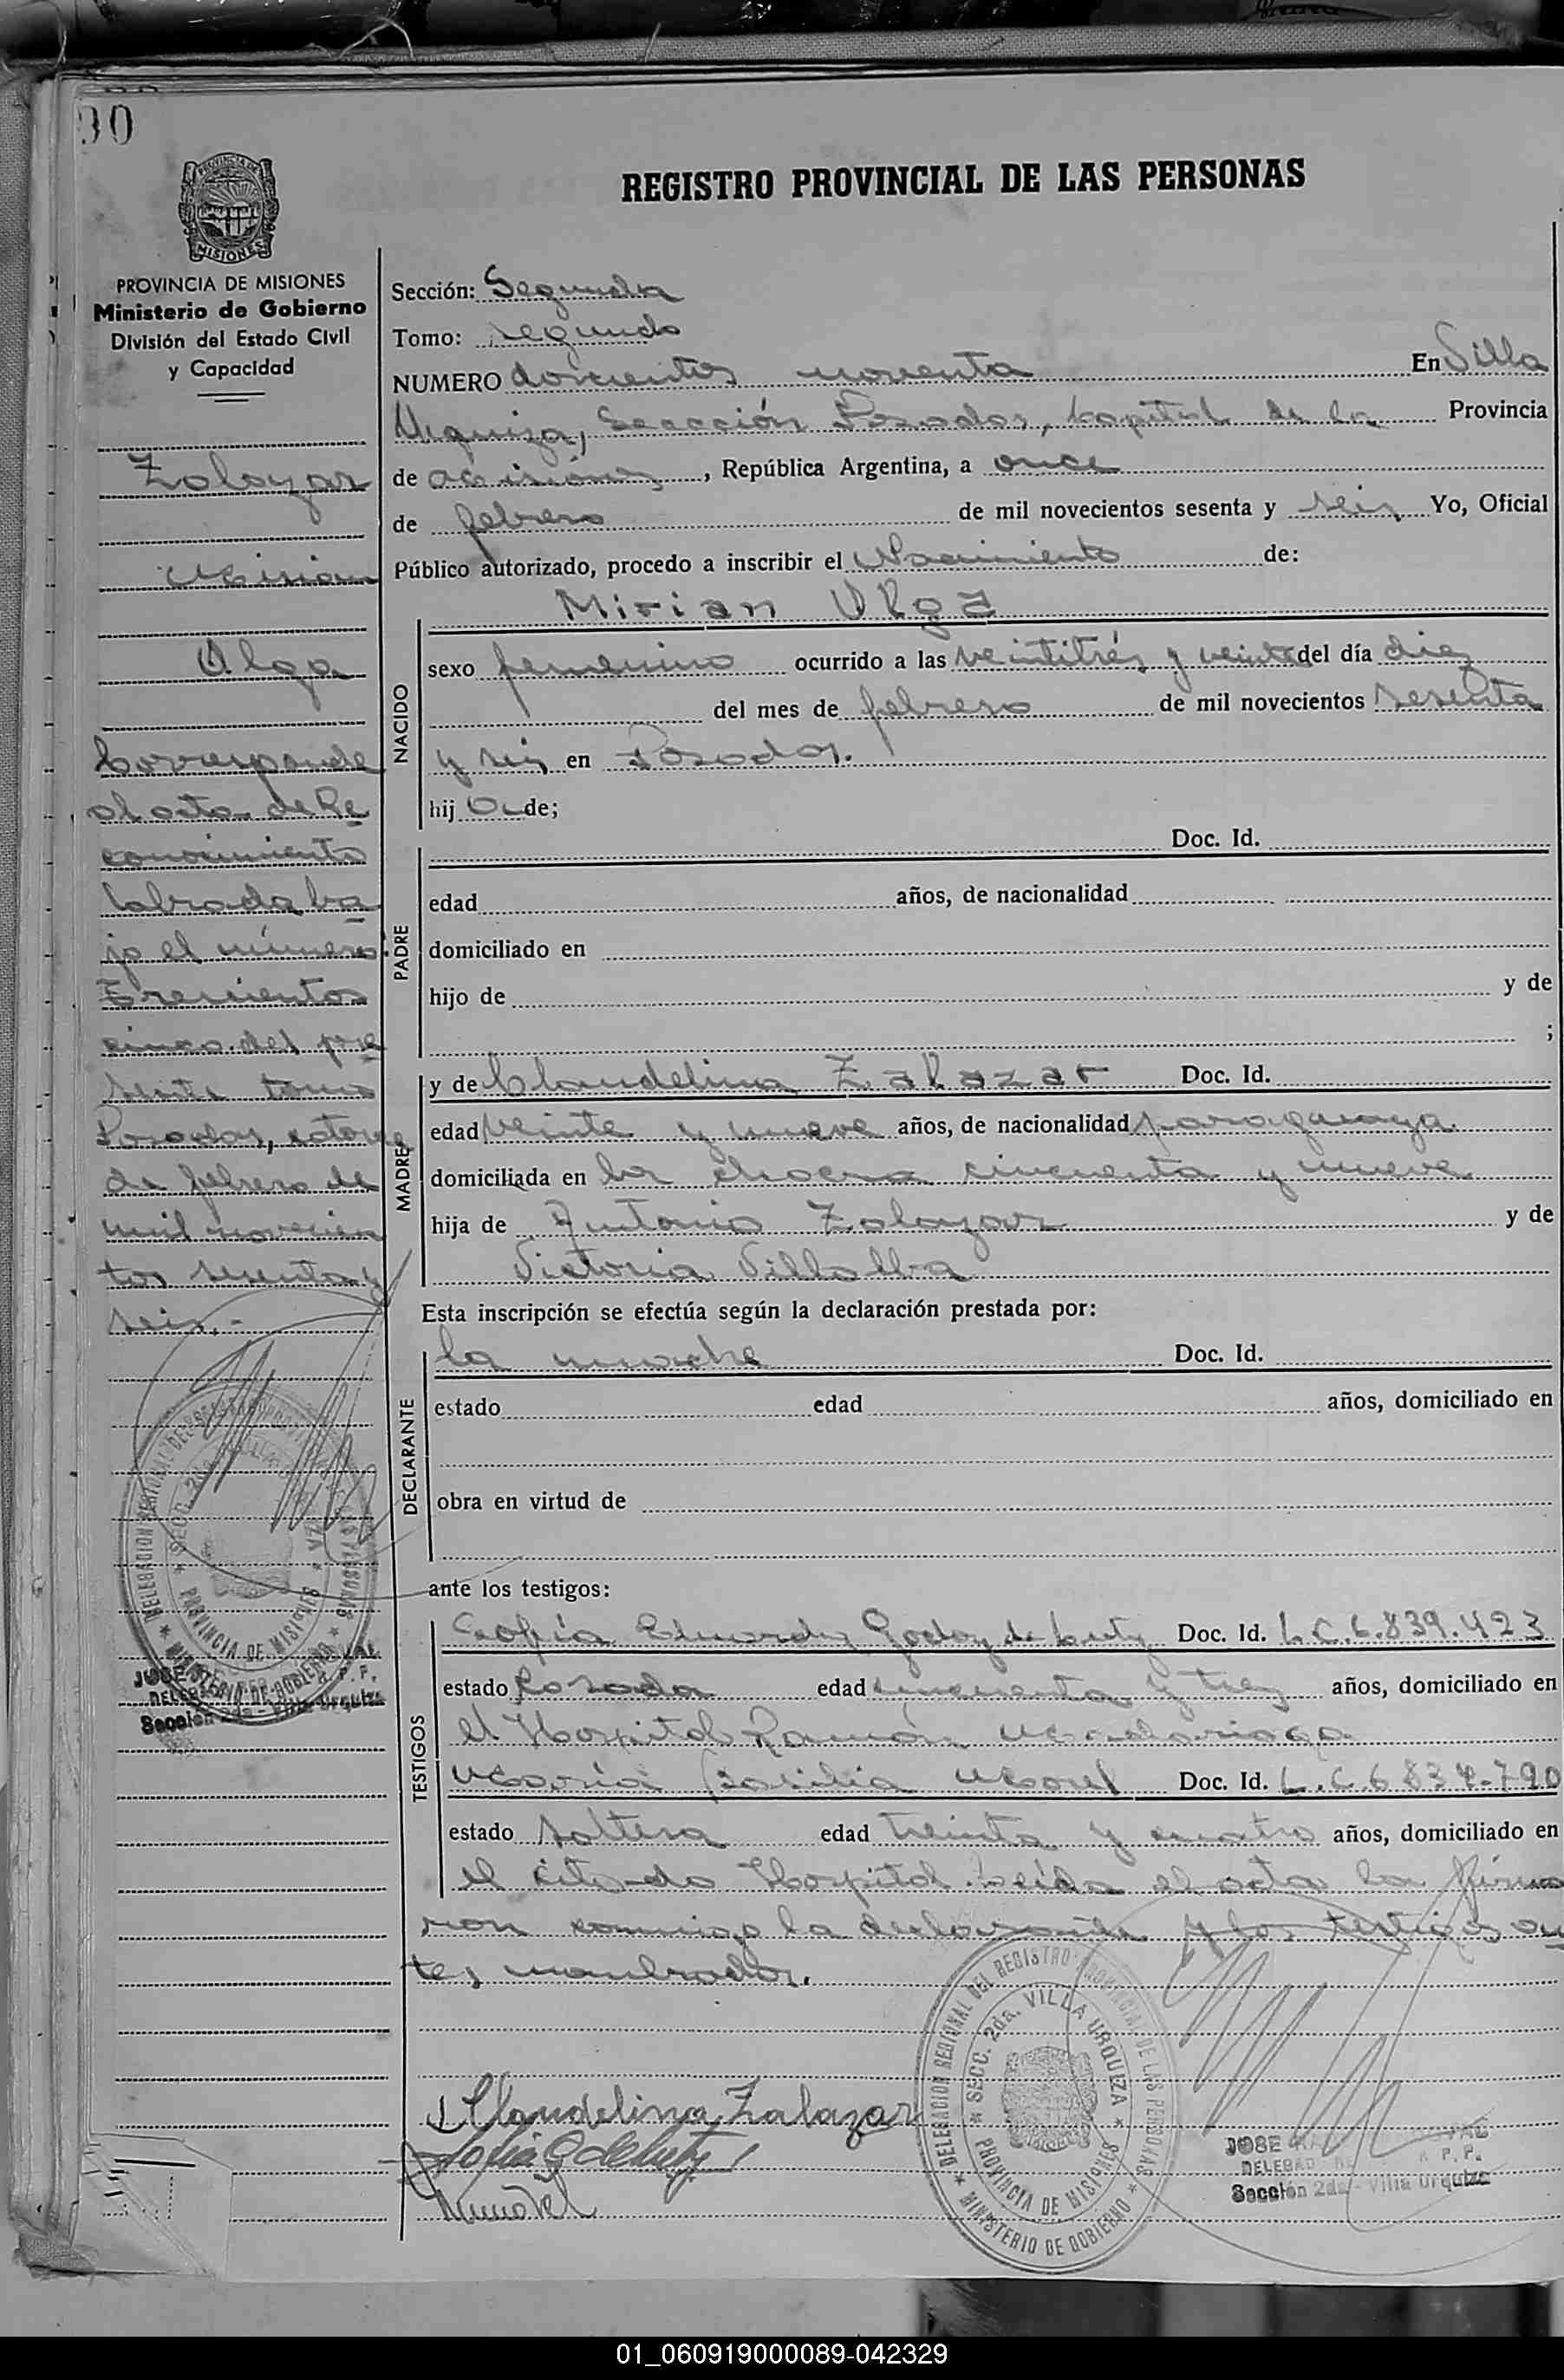 90
REGISTRO PROVINCIAL DE LAS PERSONAS
PROVINCIA DE MISIONES
Ministerio de Gobierno
División del Estado Civil
y Capacidad
Zalazar
Mirian
Olga
Corresponde
al acta de Re
conocimiento
labrada ba
jo el número
Trescientos
cinco del pre
sente tomo
Posadas, catorce
de febrero de
mil novecien
tos sesenta y
seis.-
DELEGACION REGIONAL DEL REGISTRO PROVINCIAL DE LAS PERSONAS
SECC. 2da. VILLA URQUIZA
PROVINCIA DE MISIONES
MINISTERIO DE GOBIERNO
JOSE
Sección 2da - Villa Urquiza
Sección: Segunda
Tomo: segundo
NUMERO doscientos noventa En Villa
Urquiza, Sección Posadas, Capital de la Provincia
de Misiones, República Argentina, a once
de febrero de mil novecientos sesenta y seis Yo, Oficial
Público autorizado, procedo a inscribir el Nacimiento de:
Mirian Olga
NACIDO
sexo femenino ocurrido a las veintitrés y veinte del día diez
del mes de febrero de mil novecientos sesenta
y seis en Posadas.
hij a de;
PADRE
Doc. Id.
edad años, de nacionalidad
domiciliado en
hijo de y de
;
MADRE
y de Claudelina Zalazar Doc. Id.
edad veinte y nueve años, de nacionalidad paraguaya
domiciliada en la chacra cincuenta y nueve
hija de Antonio Zalazar y de
Victoria Villalba
Esta inscripción se efectúa según la declaración prestada por:
DECLARANTE
la madre Doc. Id.
estado edad años, domiciliado en
obra en virtud de
ante los testigos:
TESTIGOS
Sofía Godoy de Doc. Id. L.C.6.839.423
estado Casada edad cincuenta y tres años, domiciliado en
el Hospital Ramón Madariaga
María Basilia Doc. Id. L.C.6.834.790
estado soltera edad treinta y cuatro años, domiciliado en
el citado Hospital. Leída el acta la firma
ron conmigo la declarante y los testigos an
tes nombrados.
Claudelina Zalazar
DELEGACION REGIONAL DEL REGISTRO PROVINCIAL DE LAS PERSONAS
SECC. 2da. VILLA URQUIZA
PROVINCIA DE MISIONES
MINISTERIO DE GOBIERNO
JOSE
R. P. P.
Sección 2da - Villa Urquiza
01_060919000089-042329